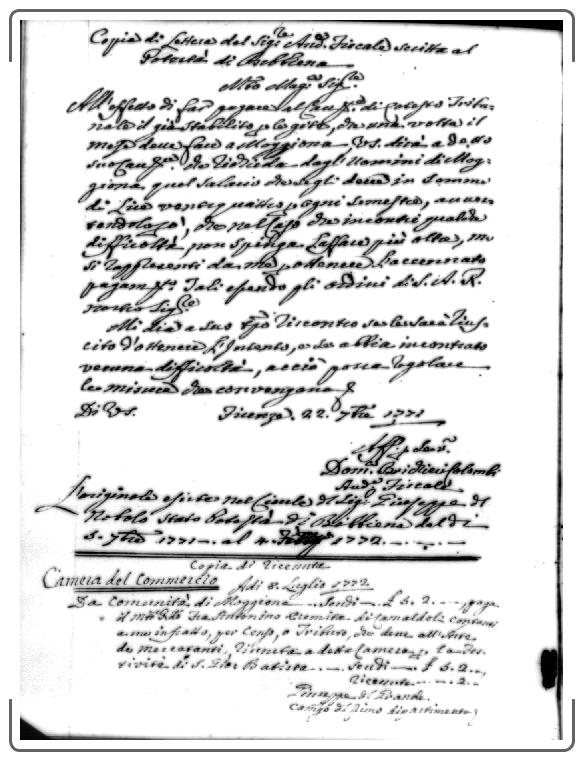 Copia di Lettera del Sig.re Aud.e Fiscale scritta al
Potestà di Bibbiena
M.to Mag.co Sig.re
All'effetto di far pagare al Can.re di codesto Tribu-
nale il già stabilito, che una volta il
mese deve fare a Moggiona Vs. dirà a detto
suo Can.re che richieda dagli Uomini di Mog-
giona quel salario che se gli deve in somma
di Lire ventiquattro ogni semestre, avver-
tendolo, che nel caso che incontri qualche
difficoltà, non spinga l'affare più oltre, ma
si rappresenti da me ottenere l'accennato
pagam.to Tali essendo gli ordini di S. A. R.
nostro Sig.re
Mi dia a suo tpo riscontro se le sarà rius-
cito d'ottenere l'intento, o se abbia incontrato
veruna difficoltà, acciò possa regolare
le misure che convengano
Di Vs. Firenze. 22. 7bre 1771
Aff. p Serv.
Dom.co Brichieri Colombi
Aud.e Fiscale
L'originale esiste nel Civile del Sig. Giuseppe del
Nobolo stato Potestà di Bibbiena dal dì
5. 7bre 1771. al 4. 1772.
Copia di Ricevute
Camera del Commercio Adi 8. Luglio 1772
La Comunità di Moggiona Scudi £ 5. 2 paga
il Fra Antonino Eremita di Camaldoli contanti
a me infratto, per Censo, o Tributo, che deve all'Arte
de mercatanti, riunita a detta Camera, la fes-
tività di S. Gio: Batista Scudi £ 5. 2
Ricevute 2.
Giuseppe del Grande
Camg.o di primo dipartimento